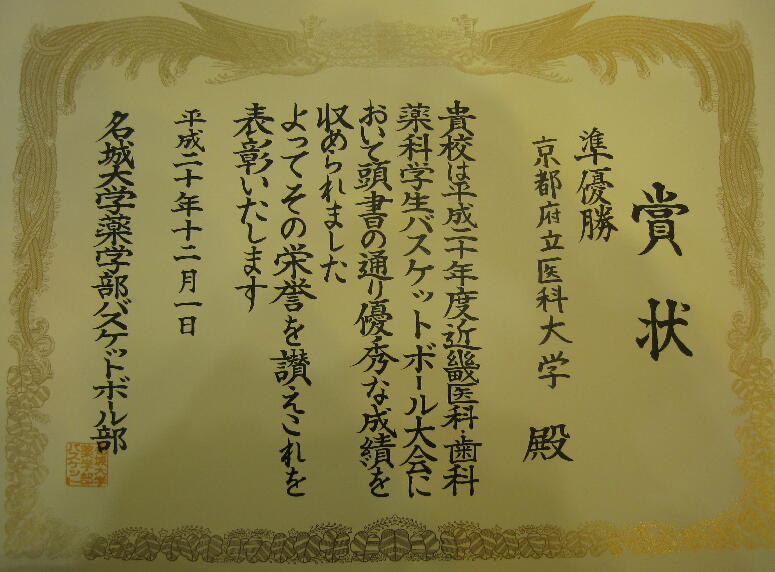 賞状
準優勝
京都府立医科大学 殿
貴校は平成二十年度近畿医科・歯科
薬科学生バスケットボール大会に
おいて頭書の通り優秀な成績を
収められました
よってその栄誉を讃えこれを
表彰いたします
平成二十年十二月一日
名城大学薬学部バスケットボール部